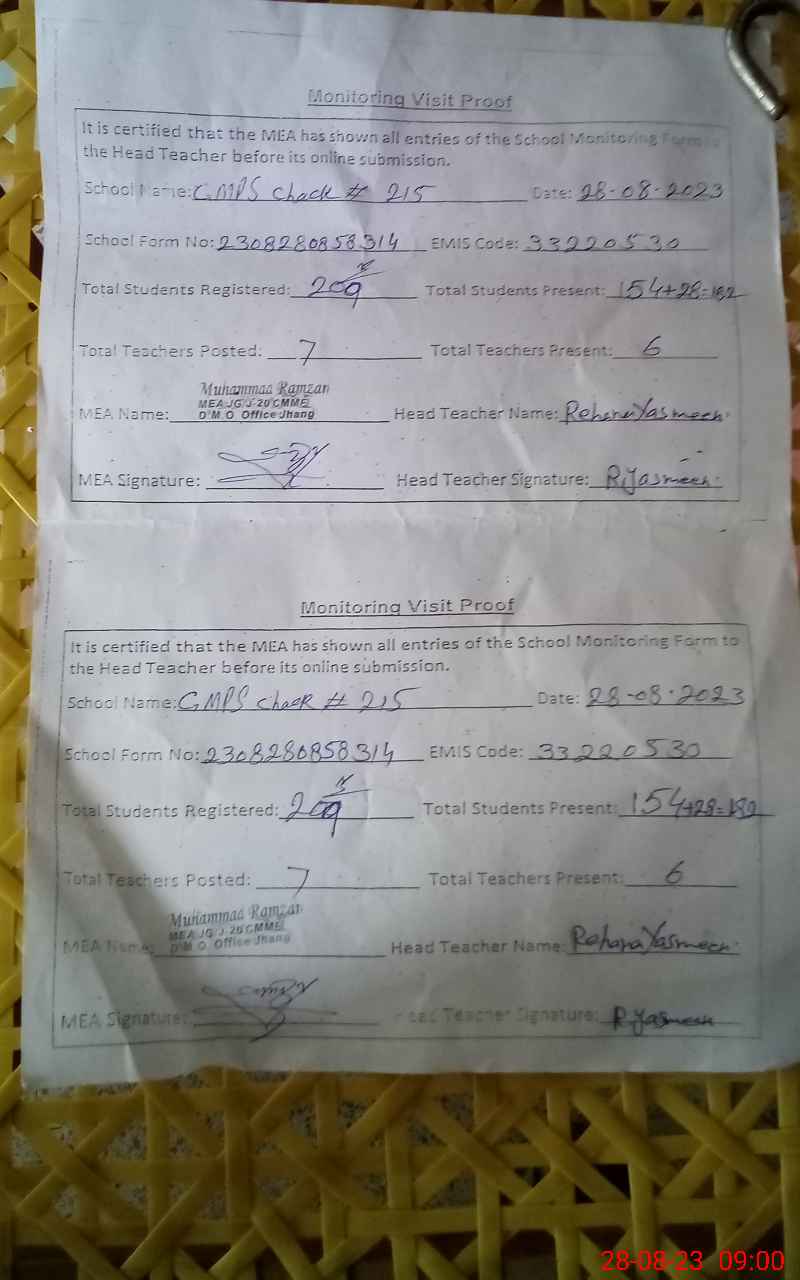 Monitoring Visit Proof
It is certified that the MEA has shown all entries of the School Monitoring Form to
the Head Teacher before its online submission.
School Name: GMPS Chack # 215 Date: 28-08-2023
School Form No: 2308280858314 EMIS Code: 33220530
Total Students Registered: 209 Total Students Present: 154+28=182
Total Teachers Posted: 7 Total Teachers Present: 6
Muhammad Ramzan
MEA JG J-20 CMMEL
MEA Name: D M O Office Jhang Head Teacher Name: Rehana Yasmeen
MEA Signature: Head Teacher Signature: R.Yasmeen
Monitoring Visit Proof
It is certified that the MEA has shown all entries of the School Monitoring Form to
the Head Teacher before its online submission.
School Name: GMPS Chack # 215 Date: 28-08-2023
School Form No: 2308280858314 EMIS Code: 33220530
Total Students Registered: 209 Total Students Present: 154+28=182
Total Teachers Posted: 7 Total Teachers Present: 6
Muhammad Ramzan
MEA JG J-20 CMMEL
MEA Name: D M O Office Jhang Head Teacher Name: Rehana Yasmeen
MEA Signature: Head Teacher Signature: R.Yasmeen
28-08-23 09:00